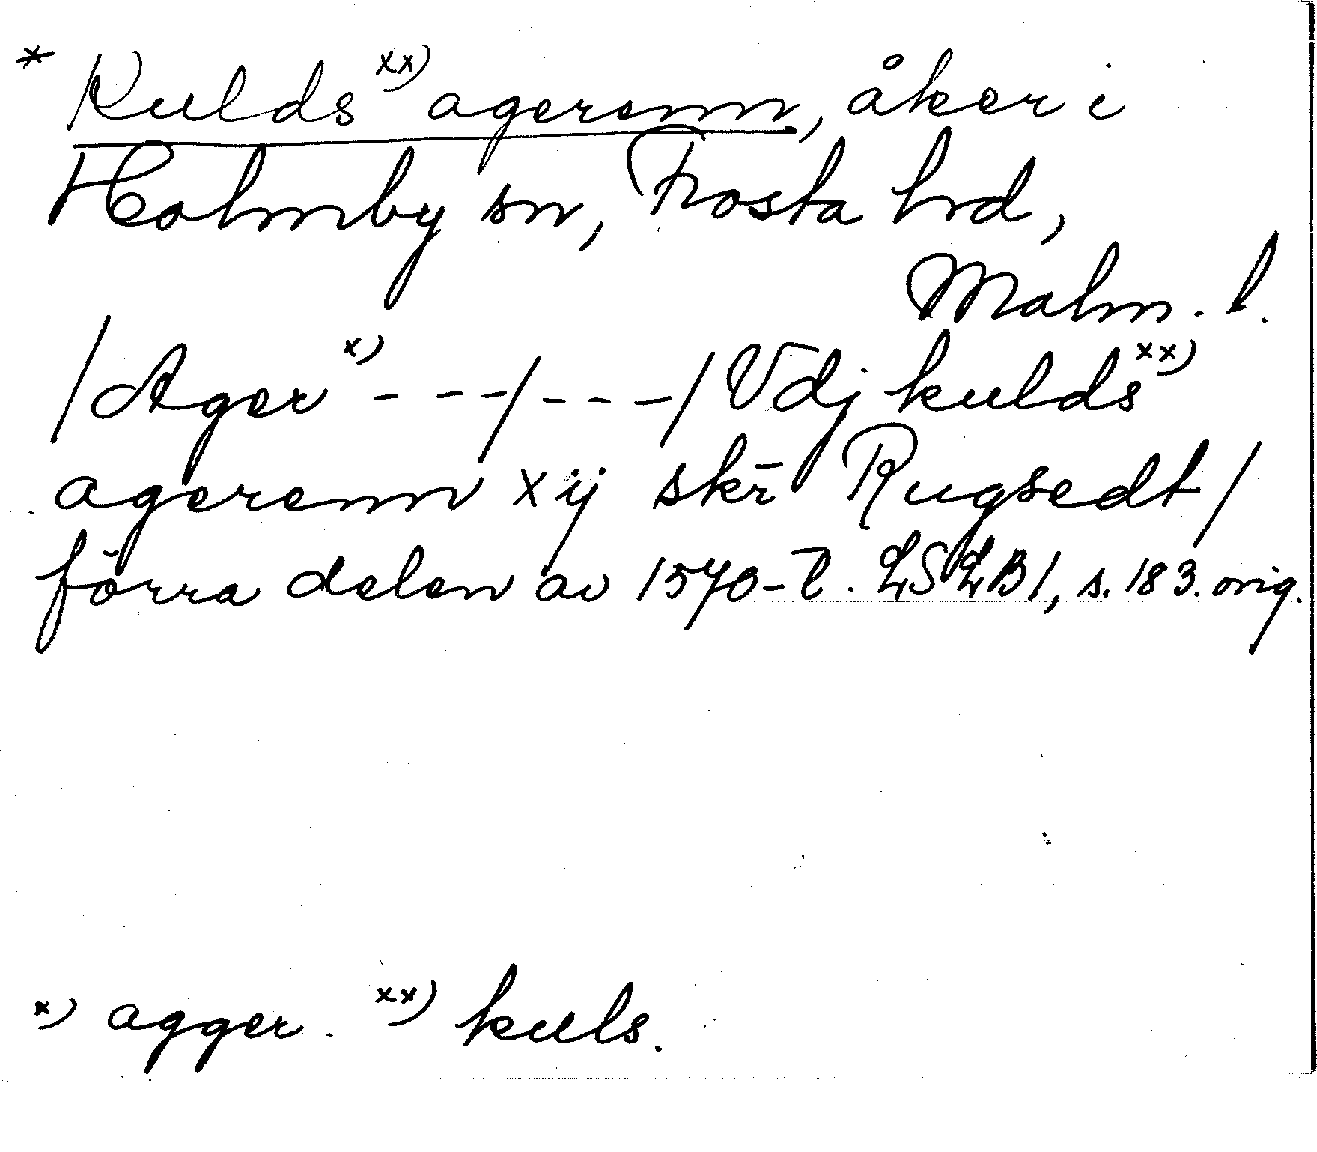 * Kulds xx) agerenn, åker i
Holmby sn, Frosta hrd,
Malm. l.
/ Ager x) - - - / - - - / Vdj kulds xx)
agerenn xij skr̄ Rugsedt /
förra delen av 1570-t. LSLB1, s. 183. orig.
x) agger. xx) kuls.